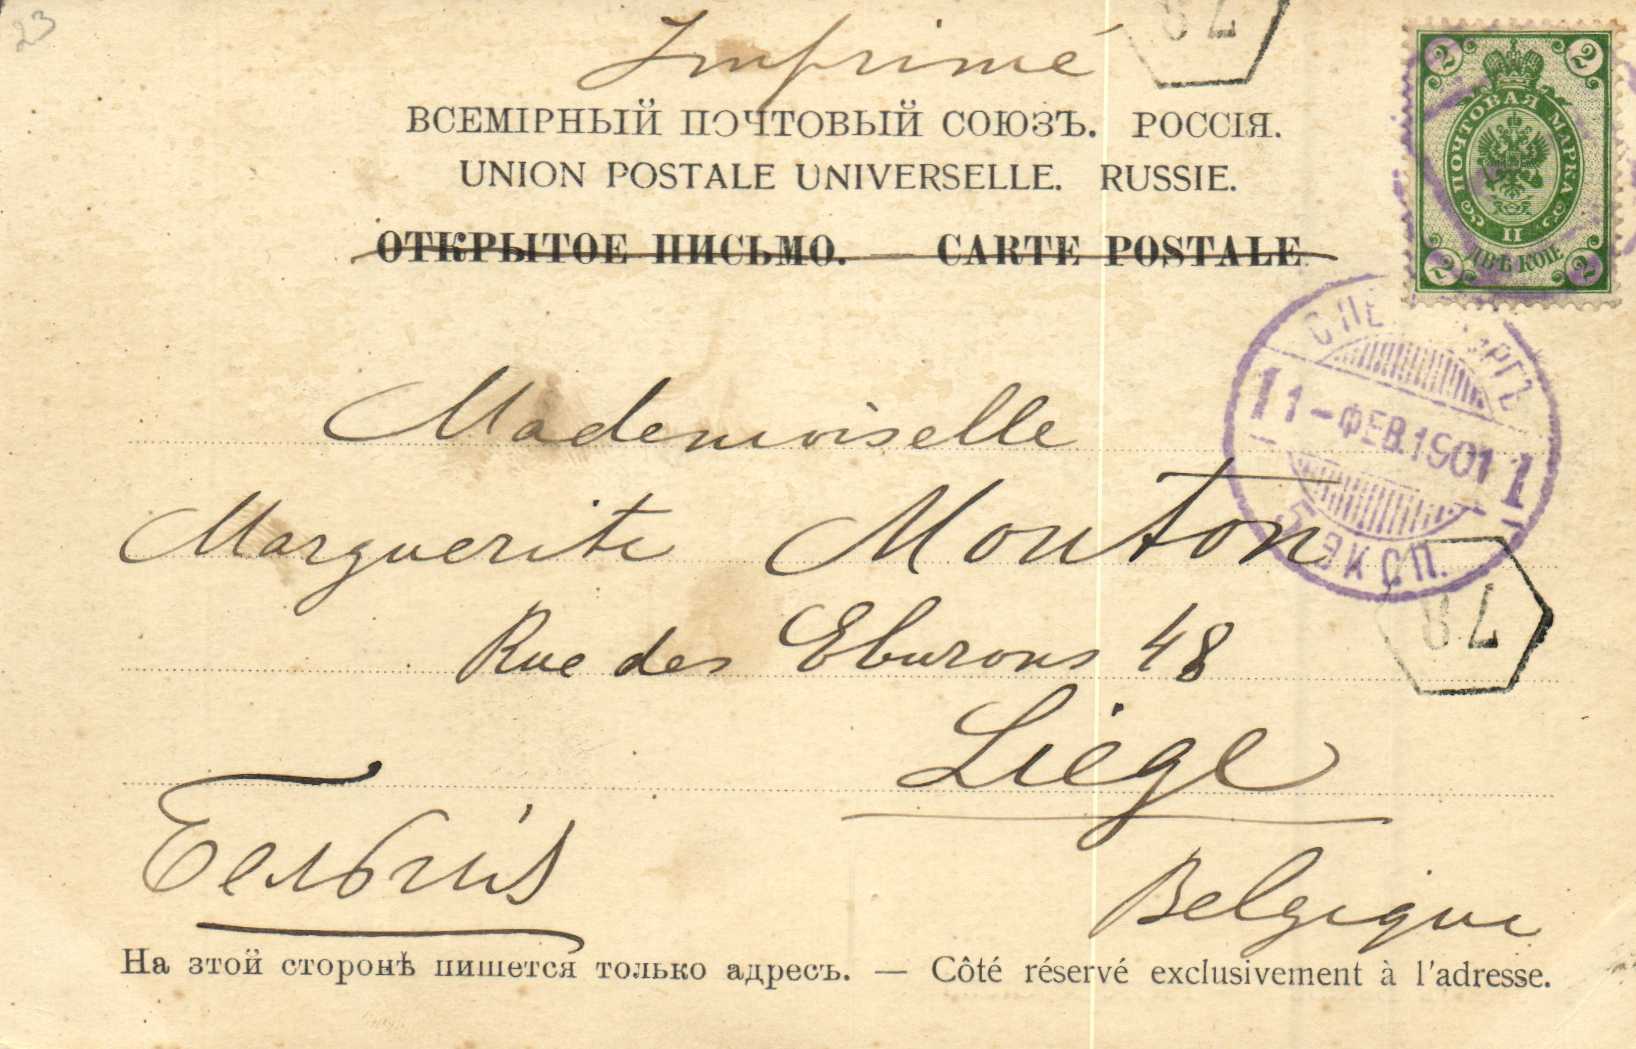 23
Imprimé
78
ВСЕМІРНЫЙ ПОЧТОВЫЙ СОЮЗЪ. РОССІЯ.
UNION POSTALE UNIVERSELLE. RUSSIE.
ОТКРЫТОЕ ПИСЬМО. — CARTE POSTALE
2 2
ПОЧТОВАЯ МАРКА
II
ДВѢ КОП
2 2
1 1-ФЕВ.1901 1
5 ЭКСП.
78
Mademoiselle
Marguerite Mouton
Rue des Eburons 48
Liége
Бельгія
Belgique
На этой сторонѣ пишется только адресъ. — Côté réservé exclusivement à l'adresse.